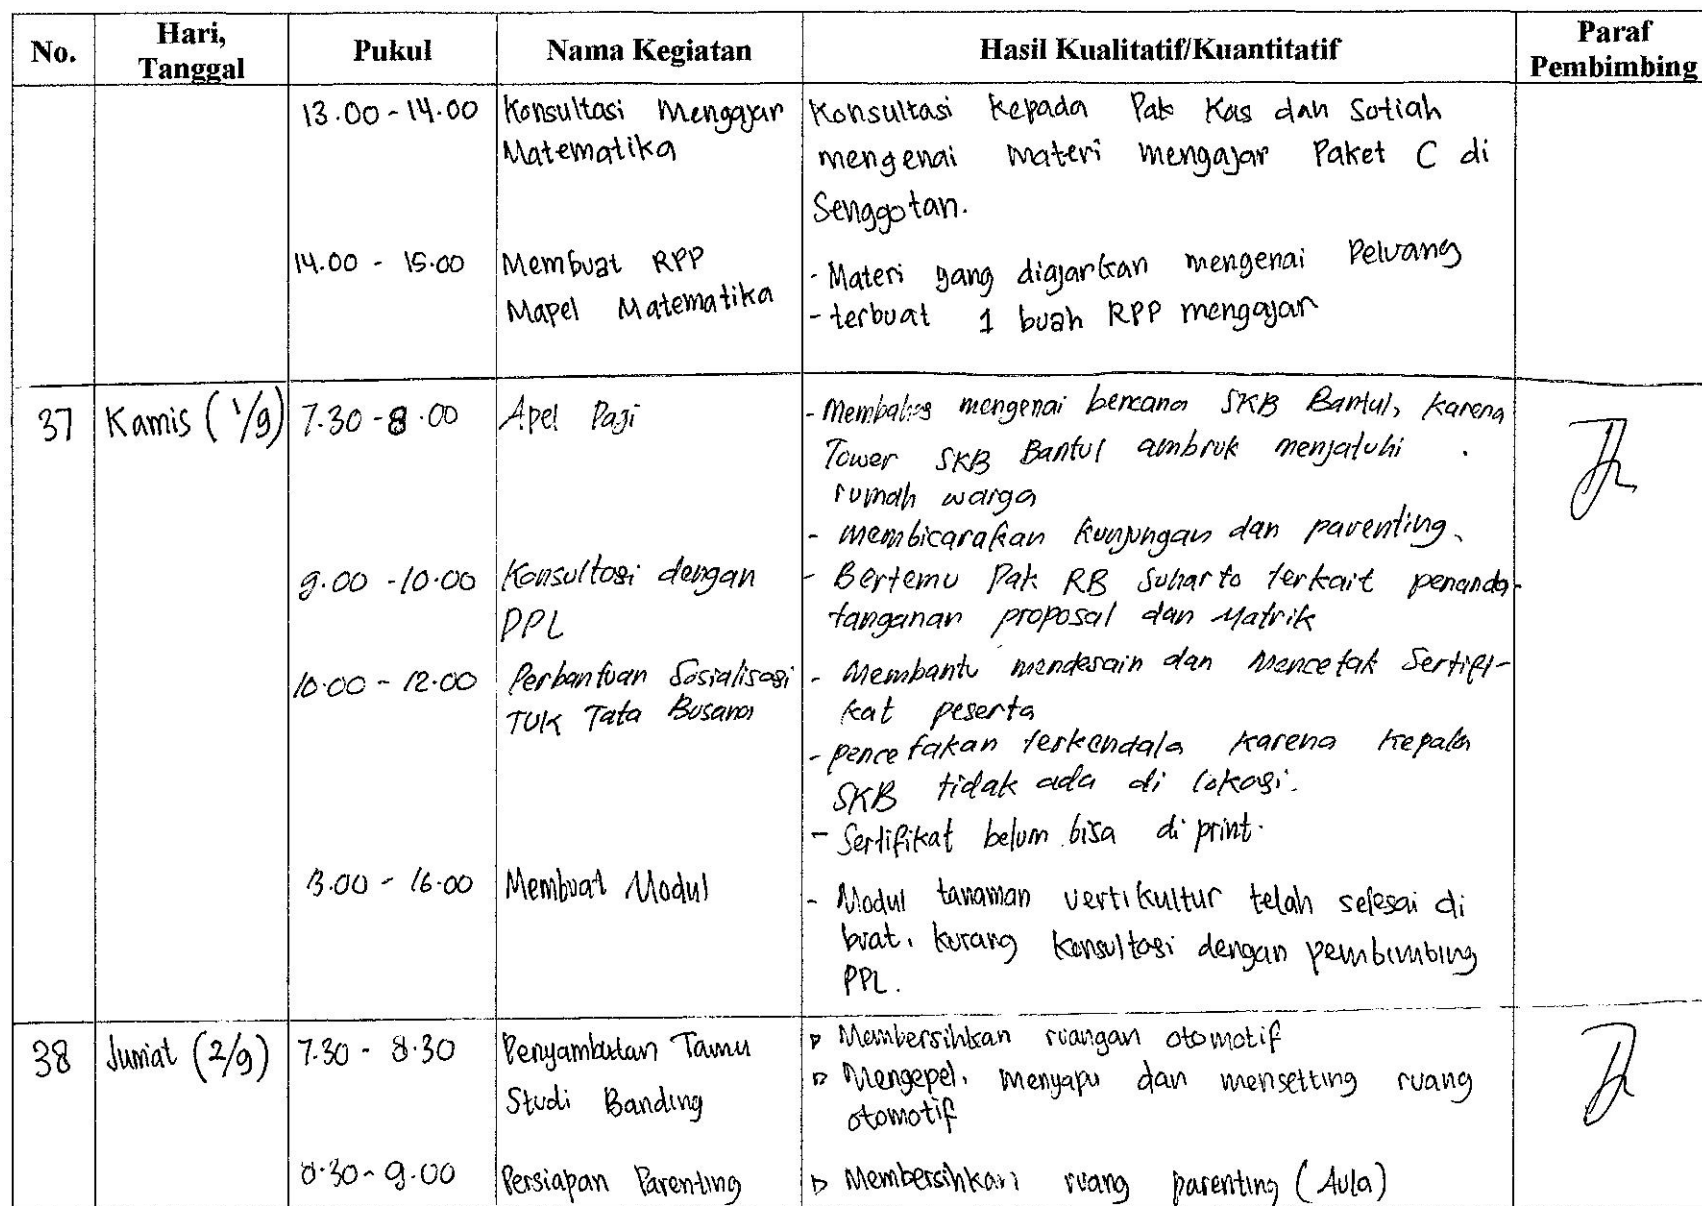 No. Hari, Tanggal Pukul Nama Kegiatan Hasil Kualitatif/Kuantitatif Paraf Pembimbing
13.00 - 14.00 Konsultasi Mengajar Konsultasi kepada Pak Kas dan Sotiah
Matematika mengenai materi mengajar Paket C di
Senggotan.
14.00 - 15.00 Membuat RPP - Materi yang diajarkan mengenai Peluang
Mapel Matematika - terbuat 1 buah RPP mengajar
37 Kamis (1/9) 7.30 - 8.00 Apel Pagi - Membahas mengenai bencana SKB Bantul, karena
Tower SKB Bantul ambruk menjatuhi
rumah warga
- membicarakan kunjungan dan parenting.
9.00 - 10.00 Konsultasi dengan - Bertemu Pak RB Suharto terkait penanda-
PPL tanganan proposal dan Matrik
10.00 - 12.00 Perbantuan Sosialisasi - Membantu mendesain dan Mencetak Sertifi-
TUK Tata Busana kat peserta
- pencetakan terkendala karena Kepala
SKB tidak ada di lokasi.
- Sertifikat belum bisa di print.
13.00 - 16.00 Membuat Modul - Modul tanaman vertikultur telah selesai di
buat, kurang konsultasi dengan pembimbing
PPL.
38 Jumat (2/9) 7.30 - 8.30 Penyambutan Tamu Membersihkan ruangan otomotif
Studi Banding Mengepel, menyapu dan mensetting ruang
otomotif
8.30 - 9.00 Persiapan Parenting Membersihkan ruang parenting (Aula)